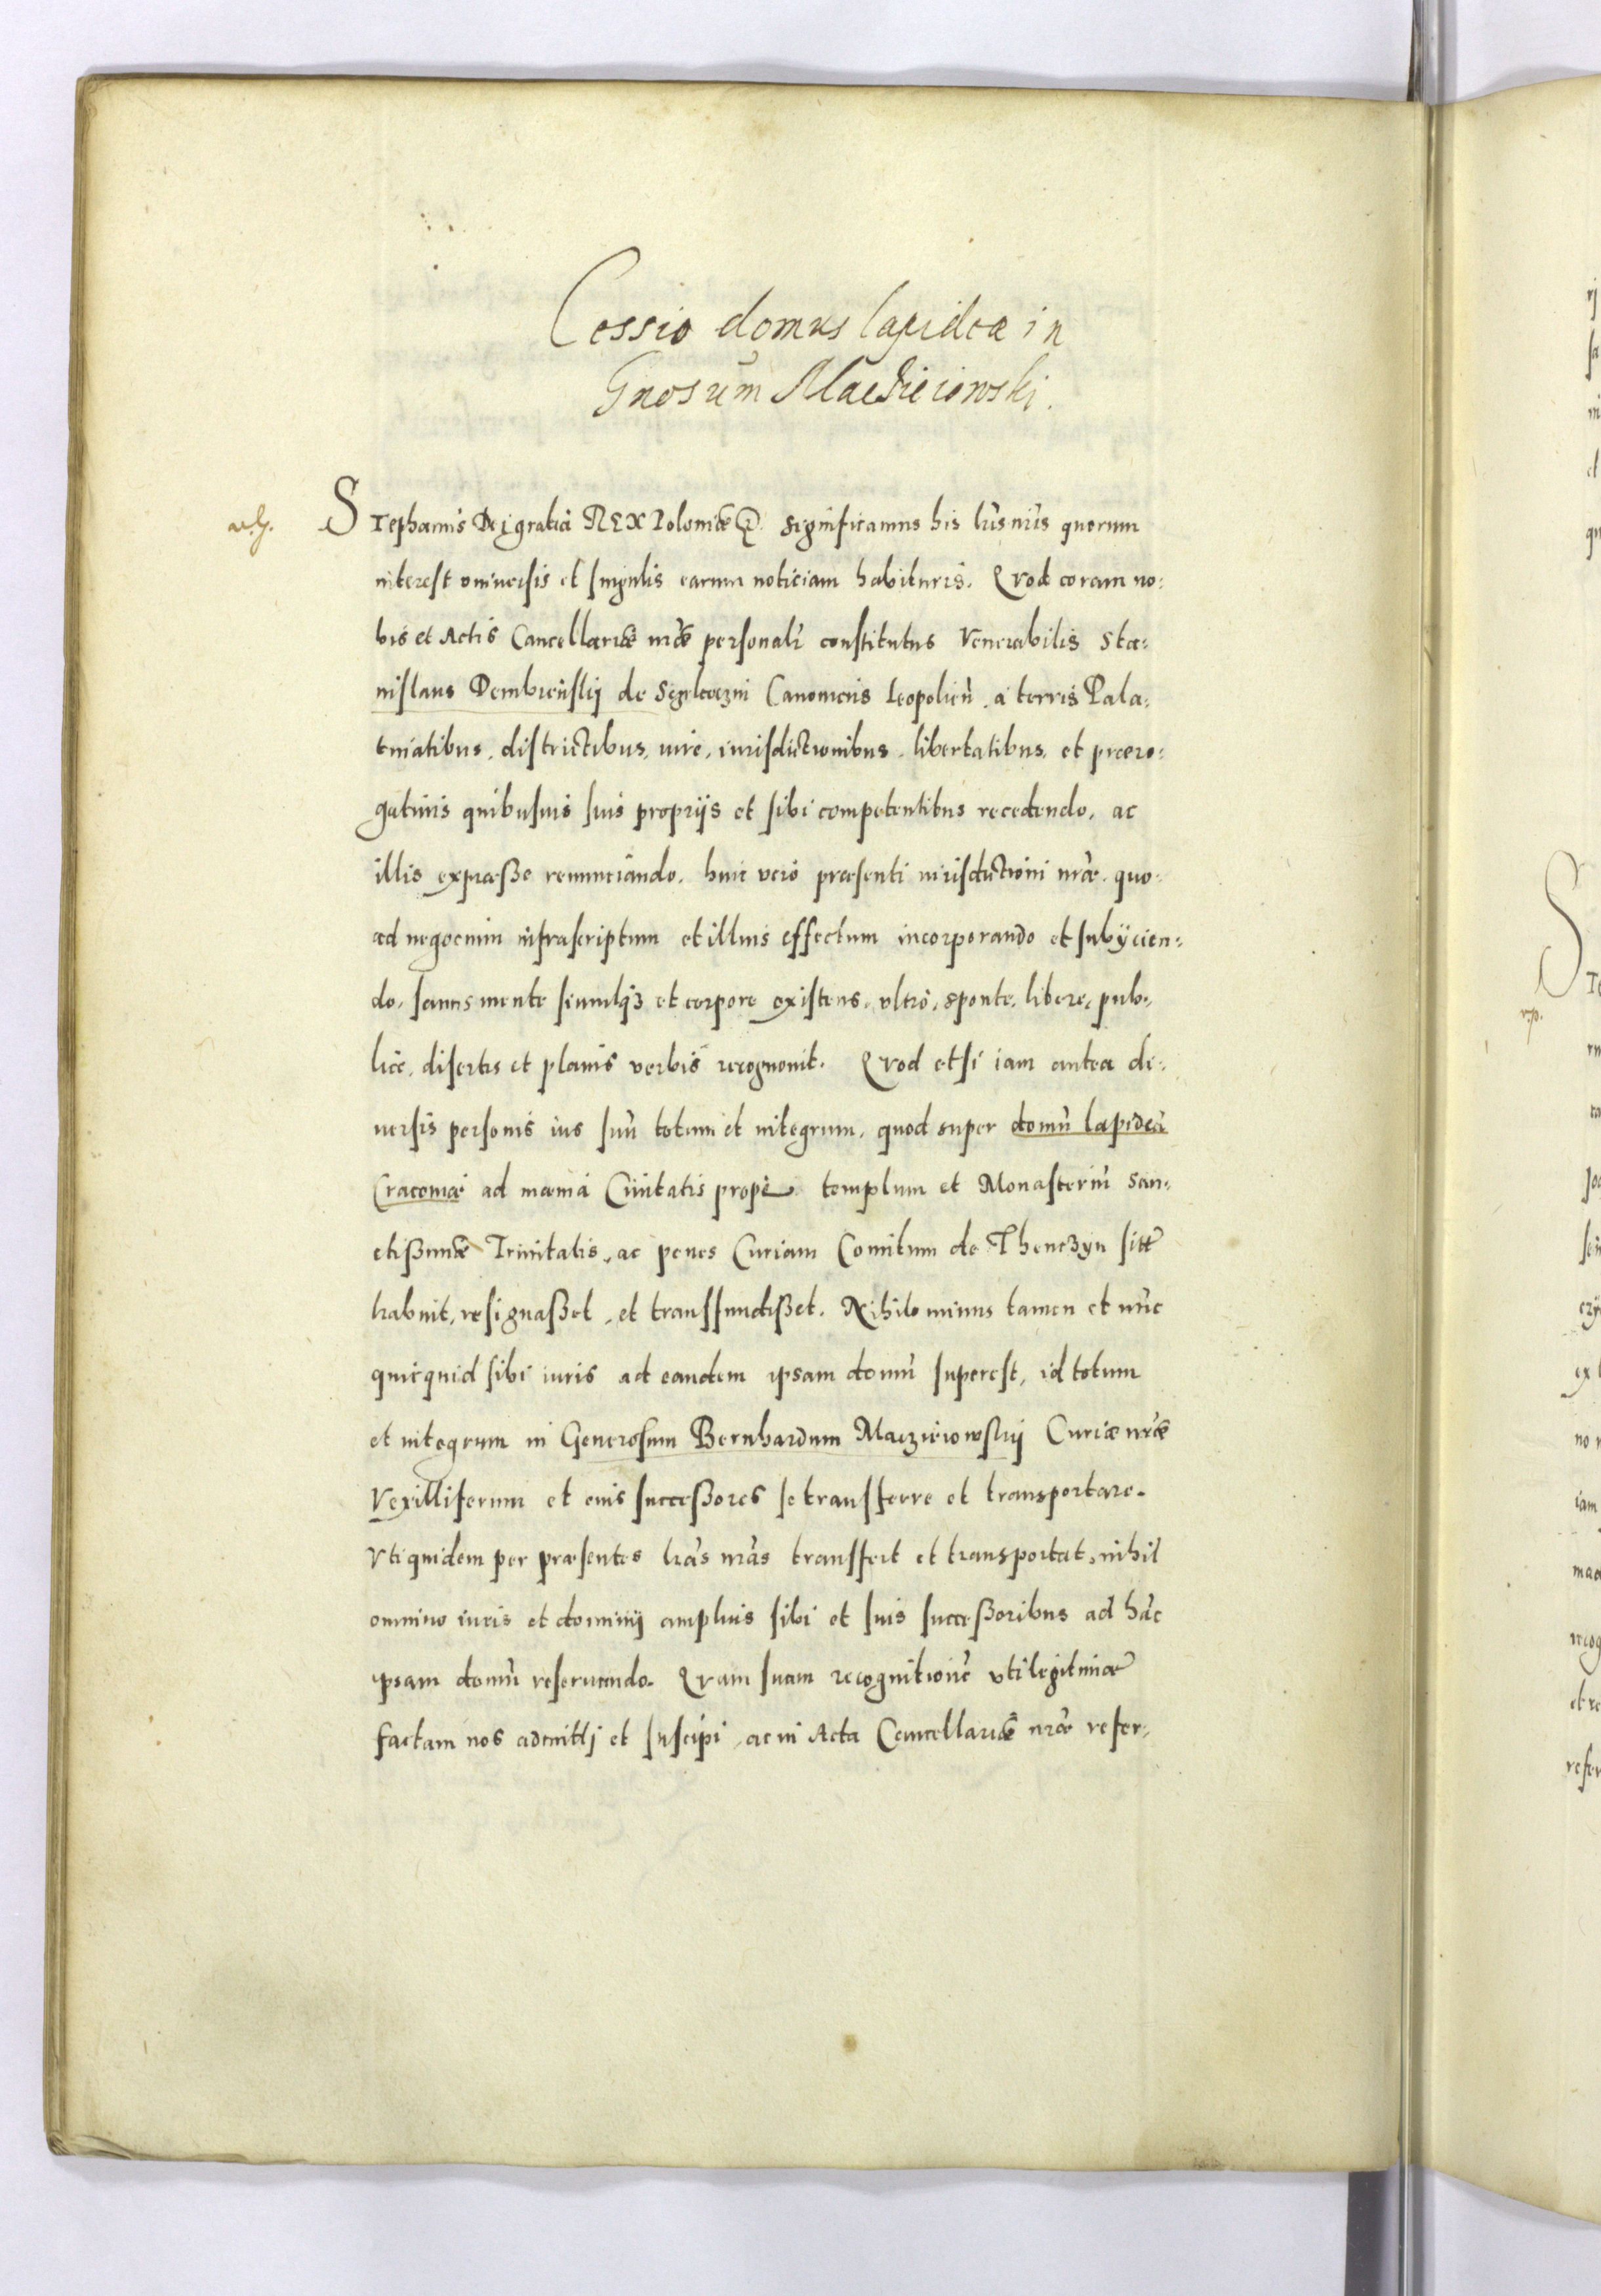 Cessio domus lapideæ in
Gnosum Maciieiowski.
Stephanus Dei gratia REX Poloniæ &. significamus his lr̃is nr̃is quorum
interest vniuersis et singulis earum noticiam habituris. Quod coram no:
bis et Actis Cancellariæ nr̃æ personalr̃ constitutus Venerabilis Sta:
nislaus Dembienskij de Canonicus Leopolien̄. à terris Pala:
tinatibus, districtibus, iure, iurisdictionibus, libertatibus, et præro:
gatiuis quibusuis suis proprijs et sibi competentibus recedendo, ac
illis expræsse renunciando, huic verò præsenti iurisdictioni nr̃æ, quo:
ad negocium infrascriptum et illius effectum incorporando et subijcien:
do, sanus mente simulqȝ et corpore existens, vltrò, sponte, libere, pub:
licè, disertis et planis verbis recognouit. Quod etsi iam antea di:
uersis personis ius suū totum et integrum, quod super domū lapideā
Cracouiæ ad mænia Ciuitatis propè templum et Monasteriū San:
ctissimæ Trinitatis, ac penes Curiam Comitum de Thenczyn sitā
habuit, resignasset, et transfundisset. Nihilominus tamen et nūc
quicquid sibi iuris ad eandem ipsam domū superest, id totum
et integrum in Generosum Bernhardum Maczieiowskij Curiæ nr̃æ
Vexilliferum et eius successores se transferre et transportare.
Vti quidem per præsentes lr̃as nr̃as transfert et transportat, nihil
omnino iuris et dominij amplius sibi et suis successoribus ad hāc
ipsam domū reseruando. Quam suam recognitionē vti legitimæ
factam nos admitti et suscipi, ac in Acta Cancellariæ nr̃æ refer: